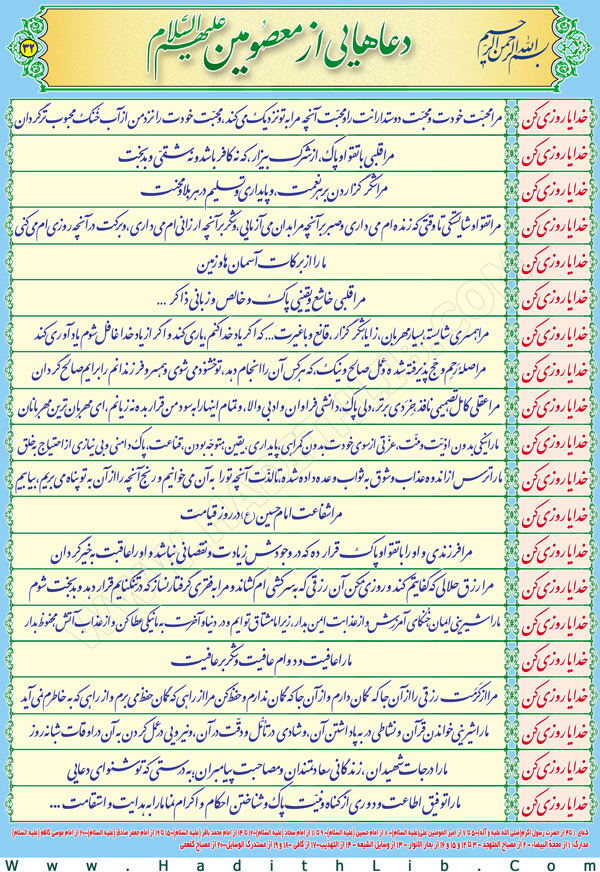 بسم الله الرحمن الرحیم
دعاهایی از معصومین علیهم السلام
۳۲
خدایا روزی کن مرا محبّت خودت و محبّت دوستدارانت را و محبّت آنچه مرا به تو نزدیک می‌کند، و محبّت خودت را نزد من از آب خُنک محبوب تر گردان
خدایا روزی کن مرا قلبی با تقوا و پاک، از شرک بیزار، که نه کافر باشد و نه شقی و بدبخت
خدایا روزی کن مرا شکر گزاردن بر هر نعمت، و پایداری و تسلیم در هر بلا و محنت
خدایا روزی کن مرا تقوا و شایستگی تا وقتی که زنده ام می داری و صبر بر آنچه مرا بدان می آزمایی، و شکر بر آنچه ارزانی ام می داری، و برکت در آنچه روزی ام می کنی
خدایا روزی کن ما را از برکات آسمان ها و زمین
خدایا روزی کن مرا قلبی خاشع و یقینی پاک و خالص و زبانی ذاکر ...
خدایا روزی کن مرا همسری شایسته، بسیار مهربان، زایا، شکر گزار، قانع و با غیرت... که اگر یاد خدا کنم، یاری کند و اگر از یاد خدا غافل شوم یادآوری کند
خدایا روزی کن مرا صله رَحِم و حج پذیرفته شده و عمل صالح و نیک، که هر کس آن را انجام دهد، تو خشنود می شوی و همسر و فرزندانم را برایم صالح گردان
خدایا روزی کن مرا عقلی کامل، تصمیمی نافذ، خِردی برتر، دلی پاک، دانشی فراوان و ادبی والا، و تمام اینها را به سود من قرار بده، نه زیانم، ای مهربان ترین مهربانان
خدایا روزی کن ما را نیکی بدون اذیّت و منّت، عزّتی از سوی خودت بدون گمراهی، پایداری، یقین به توحید بودن، قناعت، پاک دامنی و بی نیازی از احتیاج به خلق
خدایا روزی کن ما را ترس از اندوه عذاب و شوق به ثواب وعده داده شده، تا لذّت آنچه تو را به آن می خوانیم و رنج آنچه را از آن به تو پناه می بریم، بیابیم
خدایا روزی کن مرا شفاعت امام حسین (ع) در روز قیامت
خدایا روزی کن مرا فرزندی و او را با تقوا و پاک قرار ده که در وجودش زیادت و نقصانی نباشد و او را عاقبت به خیر گردان
خدایا روزی کن مرا رزق حلالی که کفایتم کند و روزی مکن آن رزقی که به سرکشی ام کشاند و مرا به فقری گرفتار نساز که در تنگنایم قرار دهد و بدبخت شوم
خدایا روزی کن ما را شیرینی ایمان، خُنکای آمرزش و از عذابت امن بدار، زیرا ما مشتاق توایم و در دنیا و آخرت به ما نیکی عطا کن و از عذاب آتش محفوظ بدار
خدایا روزی کن ما را عافیت و دوام عافیت و شکر بر عافیت
خدایا روزی کن مرا از کَرَمَت رزقی را از آن جا که گمان دارم و از آن جا که گمان ندارم و حفظ کن مرا از راهی که گمان حفظ می برم و از راهی که به خاطرم نمی آید
خدایا روزی کن ما را شیرینی خواندن قرآن و نشاطی در به پا داشتن آن، و شادی در تأمّل و دقّت در آن، و نیرویی در عمل کردن به آن در اوقات شبانه روز
خدایا روزی کن ما را درجات شهیدان، زندگانی سعادتمندان و مصاحبت پیامبران؛ به درستی که تو شنوای دعایی
خدایا روزی کن ما را توفیق اطاعت و دوری از گناه و نیّت پاک و شناختن احکام و اکرام نما ما را به هدایت و استقامت ...
Www.HadithLib.Com
WWW.HADITHLIB.COM